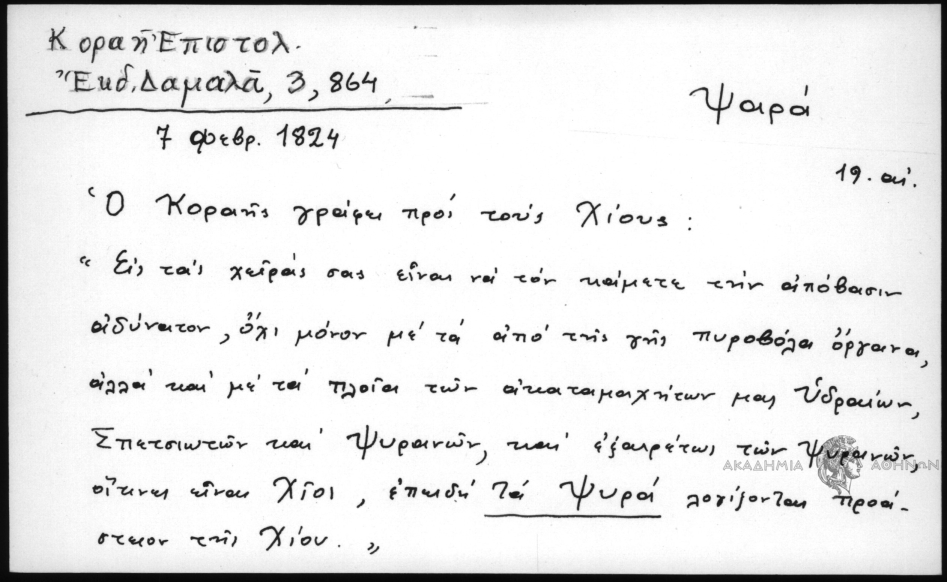 Κοραῆ Ἐπιστολ.
Ἔκδ. Δαμαλᾶ, 3, 864
Ψαρά
7 Φεβρ. 1824
19. αἰ.
Ὁ Κοραῆς γράφει πρὸς τοὺς Χίους:
"Εἰς τὰς χεῖράς σας εἶναι νὰ τὸν κάμετε τὴν ἀπόβασιν
ἀδύνατον, ὄχι μόνον μὲ τὰ ἀπὸ τῆς γῆς πυροβόλα ὄργανα,
ἀλλὰ καὶ μὲ τὰ πλοῖα τῶν ἀκαταμαχήτων μας Ὑδραίων,
Σπετσιωτῶν καὶ Ψυριανῶν, καὶ ἐξαιρέτως τῶν Ψυριανῶν,
ΑΚΑΔΗΜΙΑ ΑΘΗΝΩΝ
οἵτινες εἶναι Χῖοι, ἐπειδὴ τὰ Ψυρά λογίζονται προά-
στειον τῆς Χίου."